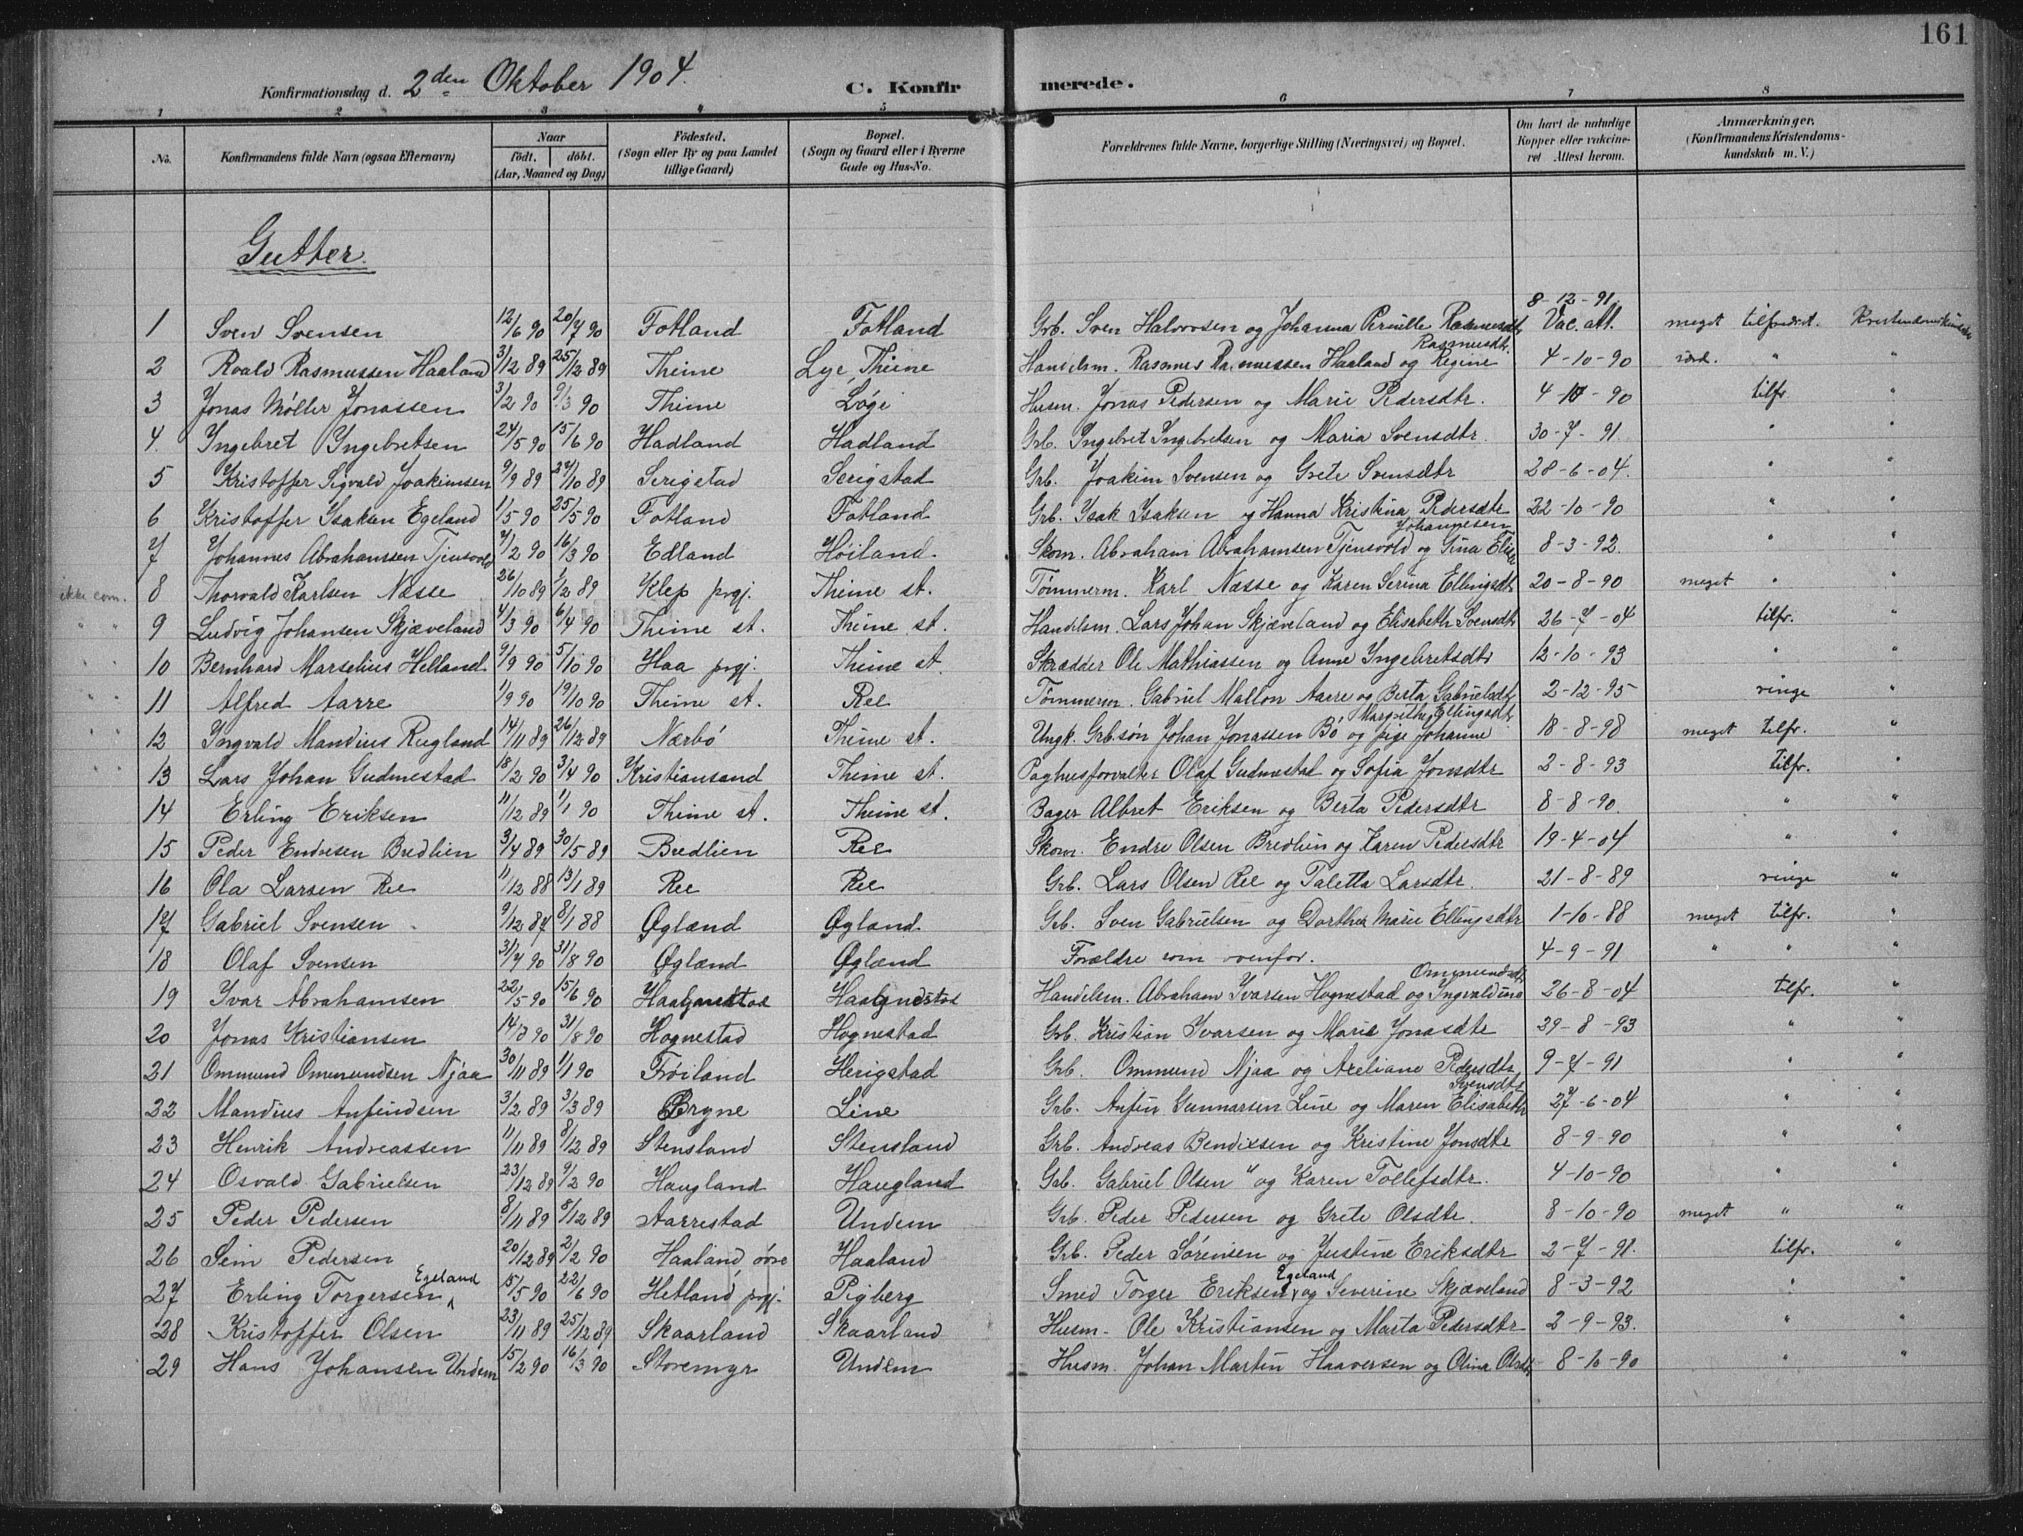 161
Konfirmationsdag d. 2den Oktober 1904 C. Konfirmerede.
1 2 3 4 5 6 7 8
No. Konfirmandens fulde Navn (ogsaa Efternavn) Naar født. døbt. (Aar, Maaned og Dag) Fødested. (Sogn eller By og paa Landet tillige Gaard) Bopæl. (Sogn og Gaard eller i Byerne Gade og Hus-No. Forældrenes fulde Navne, borgerlige Stilling (Næringsvei) og Bopæl. Om havt de naturlige Kopper eller vakcineret Attest herom. Anmærkninger. (Konfirmandens Kristendomskundskab m. V.)
Gutter.
1 Sven Svensen 12/6 90 20/7 90 Fotland Fotland Grb. Sven Halvorsen og Johanna Pernille Rasmusdtr 8-12-91 Vac. att. meget tilfredst. Kristendomskundsk.
2 Roald Rasmussen Haaland 3/12 89 25/12 89 Thime Lye, Thime Handelsm. Rasmus Rasmussen Haaland og Regine Rasmusdtr. 4-10-90 "
3 Jonas Møller Jonassen 3/2 90 9/3 90 Thime Løgi Husm. Jonas Pedersen og Marie Pedersdtr. 4-10-90 tilfr. "
4. Ingebret Ingebretsen 24/5 90 15/6 90 Hadland Hadland Grb. Ingebret Ingebretsen og Maria Svensdtr. 30-7-91 " "
5 Kristoffer Sigvald Joakimsen 9/9 89 27/10 89 Serigstad Serigstad Grb. Joakim Svensen og Grete Svensdtr 28-6-04. " "
6 Kristoffer Isaksen Egeland 1/5 90 25/5 90 Fotland Fotland Grb. Isak Isaksen og Hanna Kristina Pedersdtr 22-10-90 " "
7 Johannes Abrahamsen Tjensvold 7/2 90 16/3 90 Edland Høiland. Skom. Abraham Abrahamsen Tjensvold og Gina Elise Johannesen 8-3-92. " "
ikke com. 8 Thorvald Karlsen Næsse 26/10 89 1/12 89 Klep prgj. Thime st. Tømmerm. Karl Næsse og Karen Serina Ellingsdtr 20-8-90 meget " "
" " 9 Ludvig Johansen Skjæveland 4/3 90 6/4 90 Thime st. Thime st. Handelsm. Lars Johan Skjæveland og Elisabeth Svensdtr 26-7-04 tilfr. "
" " 10 Bernhard Marselius Helland 9/9 90 5/10 90 Haa prgj. Thime st. Skrædder Ole Mathiassen og Anne Ingebretsdtr 12-10-93 " "
" " 11 Alfred Aarre 1/9 90 19/10 90 Thime st. Ree Tømmerm. Gabriel Mallon Aarre og Berta Gabrielsdtr 2-12-95 ringe "
12 Ingvald Mandius Rugland 14/11 89 26/12 89 Nærbø Thime st. Ungk. Grb.søn Johan Jonassen Bø og pige Johanne Margrethe Ellingsdtr 18-8-98 meget tilfr. "
13 Lars Johan Gudmestad 18/2 90 3/4 90 Kristiansand Thime st. Paghusforvalter Olaf Gudmestad og Sofia Jonsdtr 2-8-93 tilfr. "
14 Erling Eriksen 11/12 89 1/1 90 Thime st. Thime st. Bager Albret Eriksen og Berta Pedersdtr 8-8-90. " "
15 Peder Endresen Bredlien 3/4 89 30/5 89 Bredlien Ree Skom. Endre Olsen Bredlien og Karen Pedersdtr 19-4-04 " "
16 Ola Larsen Ree 11/12 88 13/1 89 Ree Ree Grb. Lars Olsen Ree og Taletta Larsdtr. 21-8-89 ringe "
17 Gabriel Svensen 9/12 87 8/1 88 Øgland Øgland. Grb. Sven Gabrielsen og Dorthea Marie Ellingsdtr 1-10-88 meget tilfr. "
18 Olaf Svensen 31/7 90 31/8 90 Øgland Øgland Forældre som ovenfor. 4-9-91 " " "
19 Ivar Abrahamsen 22/5 90 15/6 90 Handelsm. Abraham Ivarsen Hognestad og Ingvaldine Ommundsdtr 26-8-04 tilfr. "
20 Jonas Kristiansen 14/8 90 31/8 90 Hognestad Hognestad Grb. Kristian Ivarsen og Marie Jonasdtr 29-8-93 " "
21 Ommund Ommundsen Njaa 30/11 89 1/1 90 Frøiland Herigstad Grb. Ommund Njaa og Axeliane Pedersdtr. 9-7-91 " "
22 Mandius Anfindsen 3/2 89 3/3 89 Bryne Line Grb. Anfin Gunnarsen Line og Maren Elisabeth Svensdtr 27-6-04 " "
23 Henrik Andreassen 11/11 89 8/12 89 Stensland Stensland Grb. Andreas Bendixsen og Kristine Jonsdtr 8-9-90 " "
24 Osvald Gabrielsen 23/12 89 9/2 90 Haugland Haugland Grb. Gabriel Olsen " og Karen Tollefsdtr. 4-10-90 " "
25 Peder Pedersen 8/11 89 8/12 89 Aarrestad Undem Grb. Peder Pedersen og Grete Olsdtr. 8-10-90 meget " "
26 Sem Pedersen 20/12 89 2/2 90 Haaland, øvre Haaland Grb. Peder Sørensen og Justine Eriksdtr 2-7-91. tilfr. "
27 Erling Torgersen Egeland 15/5 90 22/6 90 Hetland prgj. Pigberg Smed Torger Eriksen Egeland og Severine Skjæveland 8-3-92 " "
28 Kristoffer Olsen 23/11 89 25/12 89 Skaarland Skaarland Husm. Ole Kristiansen og Marta Pedersdtr 2-9-93. " "
29 Hans Johansen Undem 15/2 90 16/3 90 Storemyr Undem Husm. Johan Martin Haaversen og Olina Olsdtr 8-10-90 " "